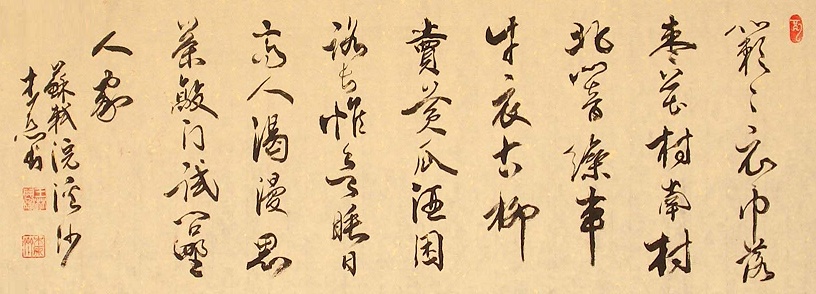 簌簌衣巾落
枣花村南村
北響缲車
牛衣古柳
賣黄瓜酒困
路長惟欲睡日
高人渴漫思
茶敲门试问野
人家
蘇軾浣溪沙